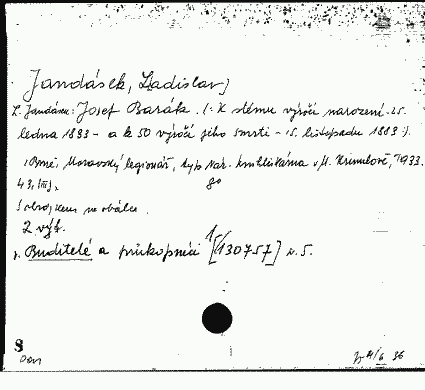 Jandásek, Ladislav
L. Jandásek: Josef Barák. (: K stému výročí narození 25.
ledna 1833 - a k 50 výročí jeho smrti - 15. listopadu 1883 :).
Brně, Moravský legionář, typ. Nár. knihtiskárna v M. Krumlově, 1933.
43, (III), 8°
1 obraz na obálce.
2 výt.
Buditelé a průkopníci [130757] č. 5.
8
Dar